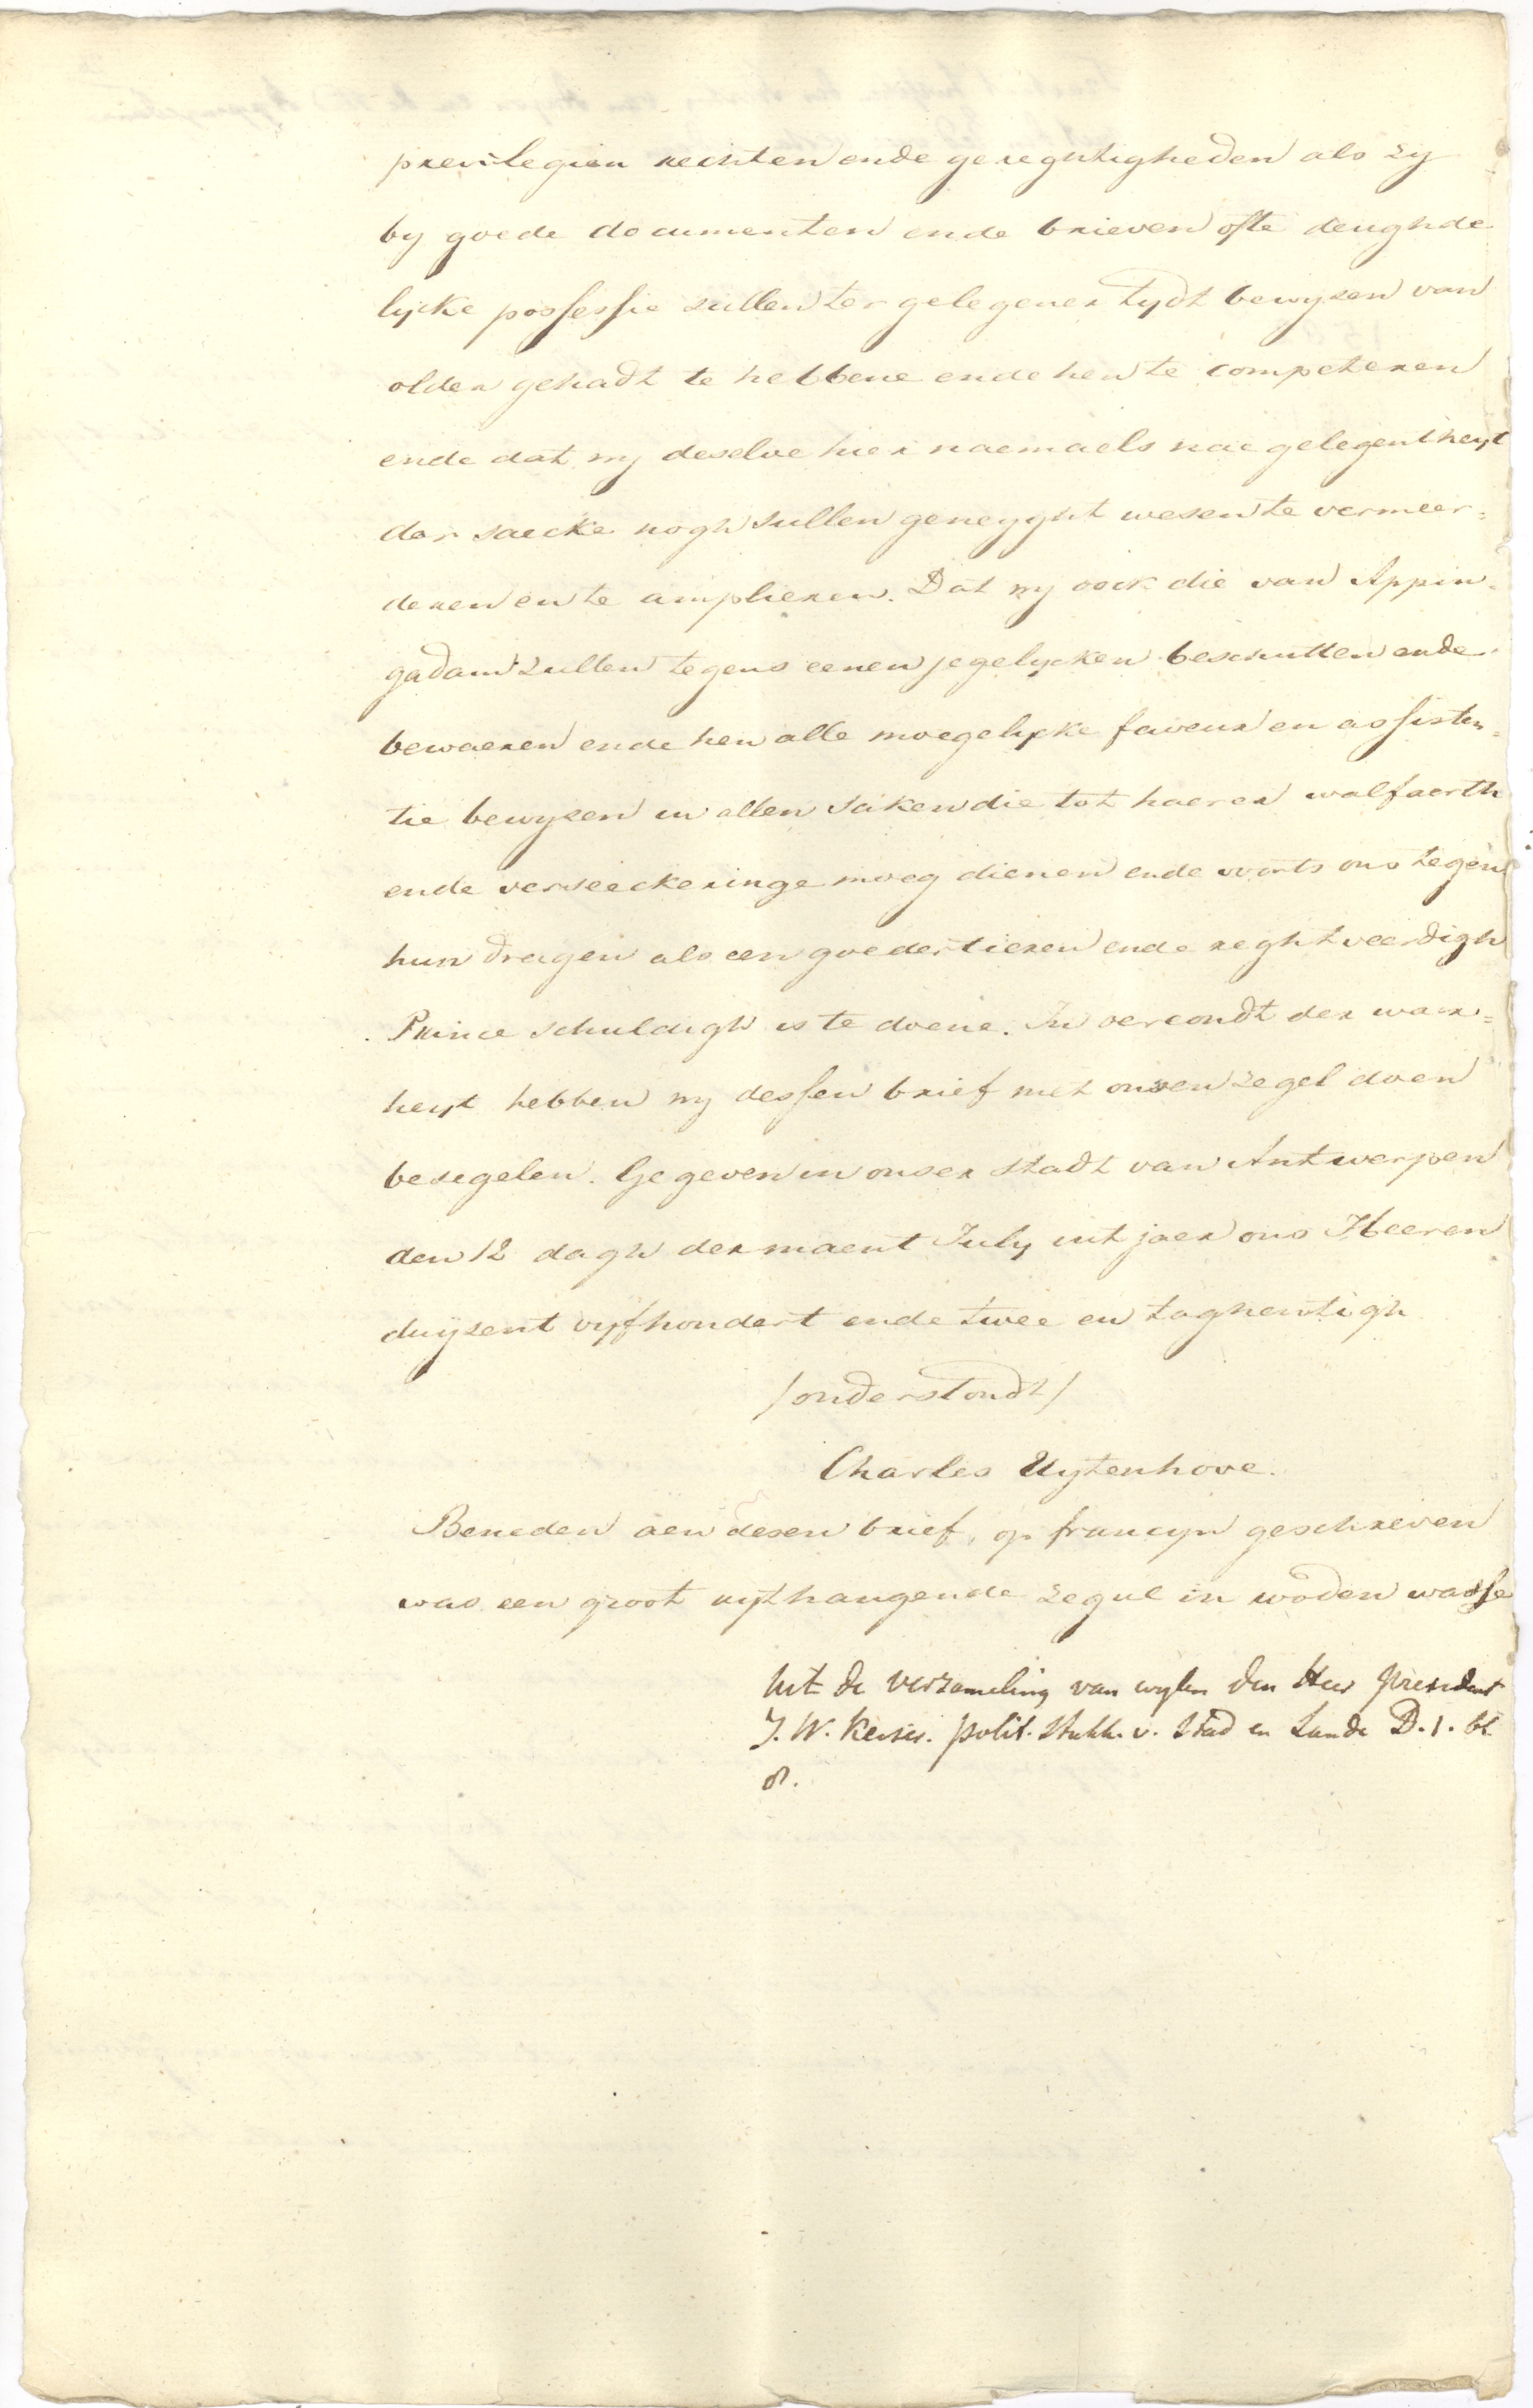 previlegien rechten ende geregtigheden als zy
by goede documenten ende brieven ofte deughde
lycke possessie zullen ter gelegener tydt bewyzen van
older gehadt te hebbene ende hen te competeren
ende dat wy deselve hier naemaels nae gelegentheyt
der saecke nogh sullen geneyght wesen te vermeer=
deren en te amplieren. Dat wy oock die van Appin=
gadam zullen tegens eenen jegelycken beschutten ende
bewaeren ende hen alle moegelycke faveur en assisten=
tie bewyzen in allen saken die tot haerer walfaerth
ende verseeckeringe moeg dienen ende voorts ons tegen
hun dragen als een goedertieren ende reghtveerdigh
Prince schuldigh is te doene. In oercondt der waar=
heyt hebben wy dessen brief met onsen zegel doen
besegelen. Gegeven in onser stadt van Antwerpen
den 12 dagh der maent July int jaer ons Heeren
duyzent vyfhondert ende twee en taghentigh
/onderstondt/
Charles Uytenhove.
Beneden aen desen brief, op francyn geschreven
was een groot uythangende zegul in roden wasse
Uit de verzameling van wylen den Heer President
J. W. Keiser. polit. Stukk. v. Stad en Lande D. 1. bl.
8.